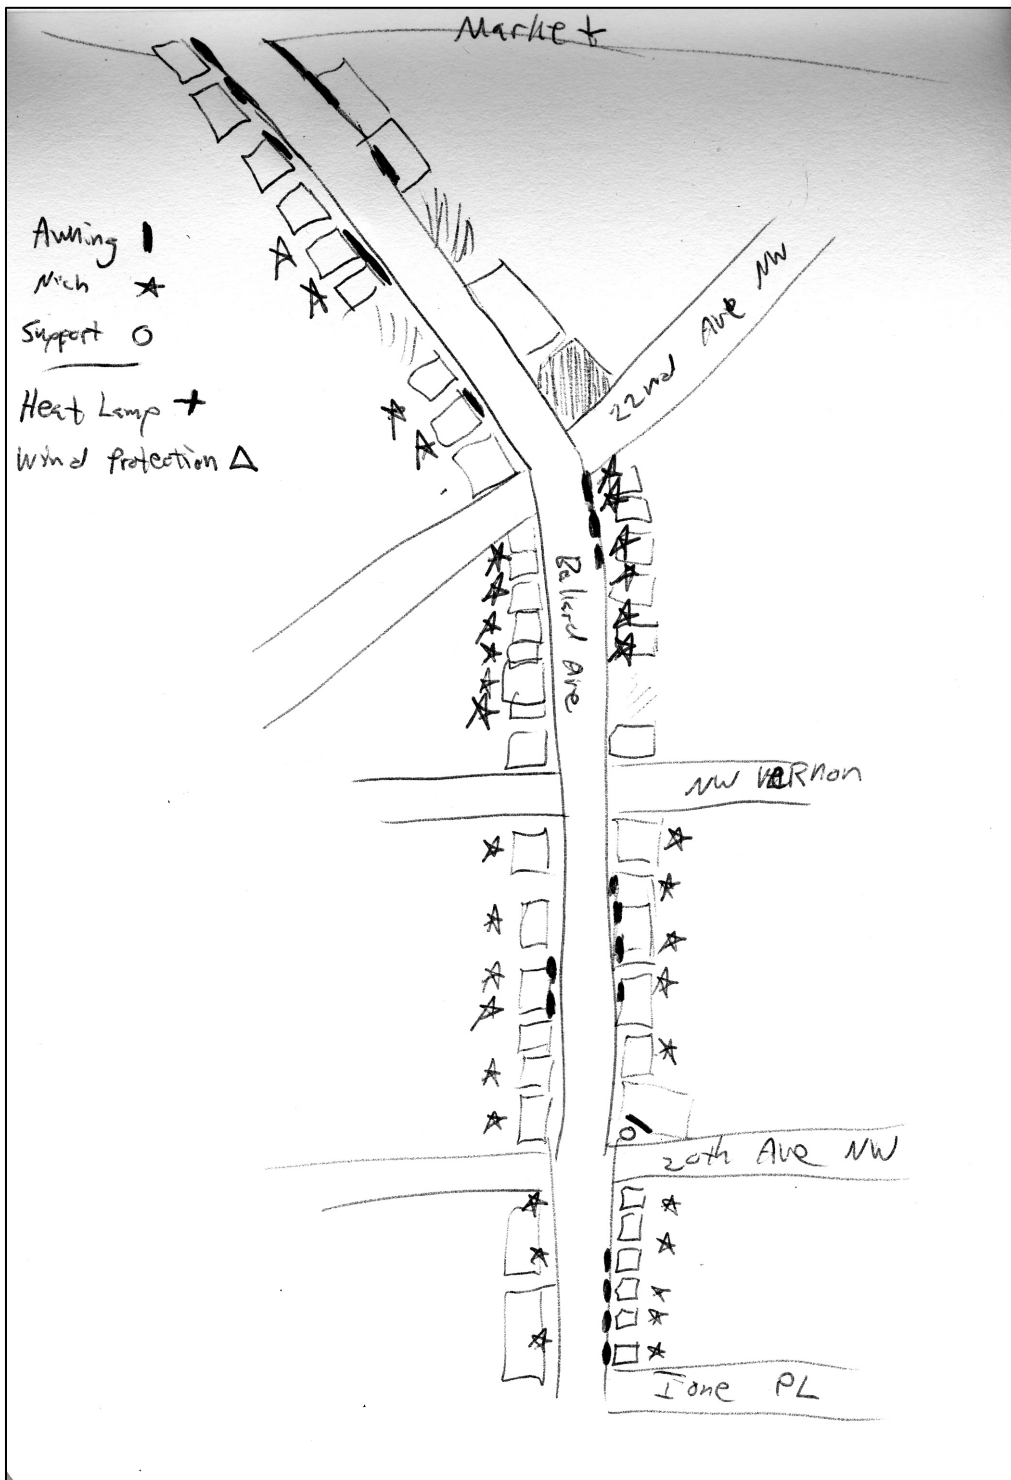 Market
Awning
Nich
Support
Heat Lamp
Wind Protection
22nd Ave NW
Ballard Ave
NW VERNON
20th Ave NW
Ione PL